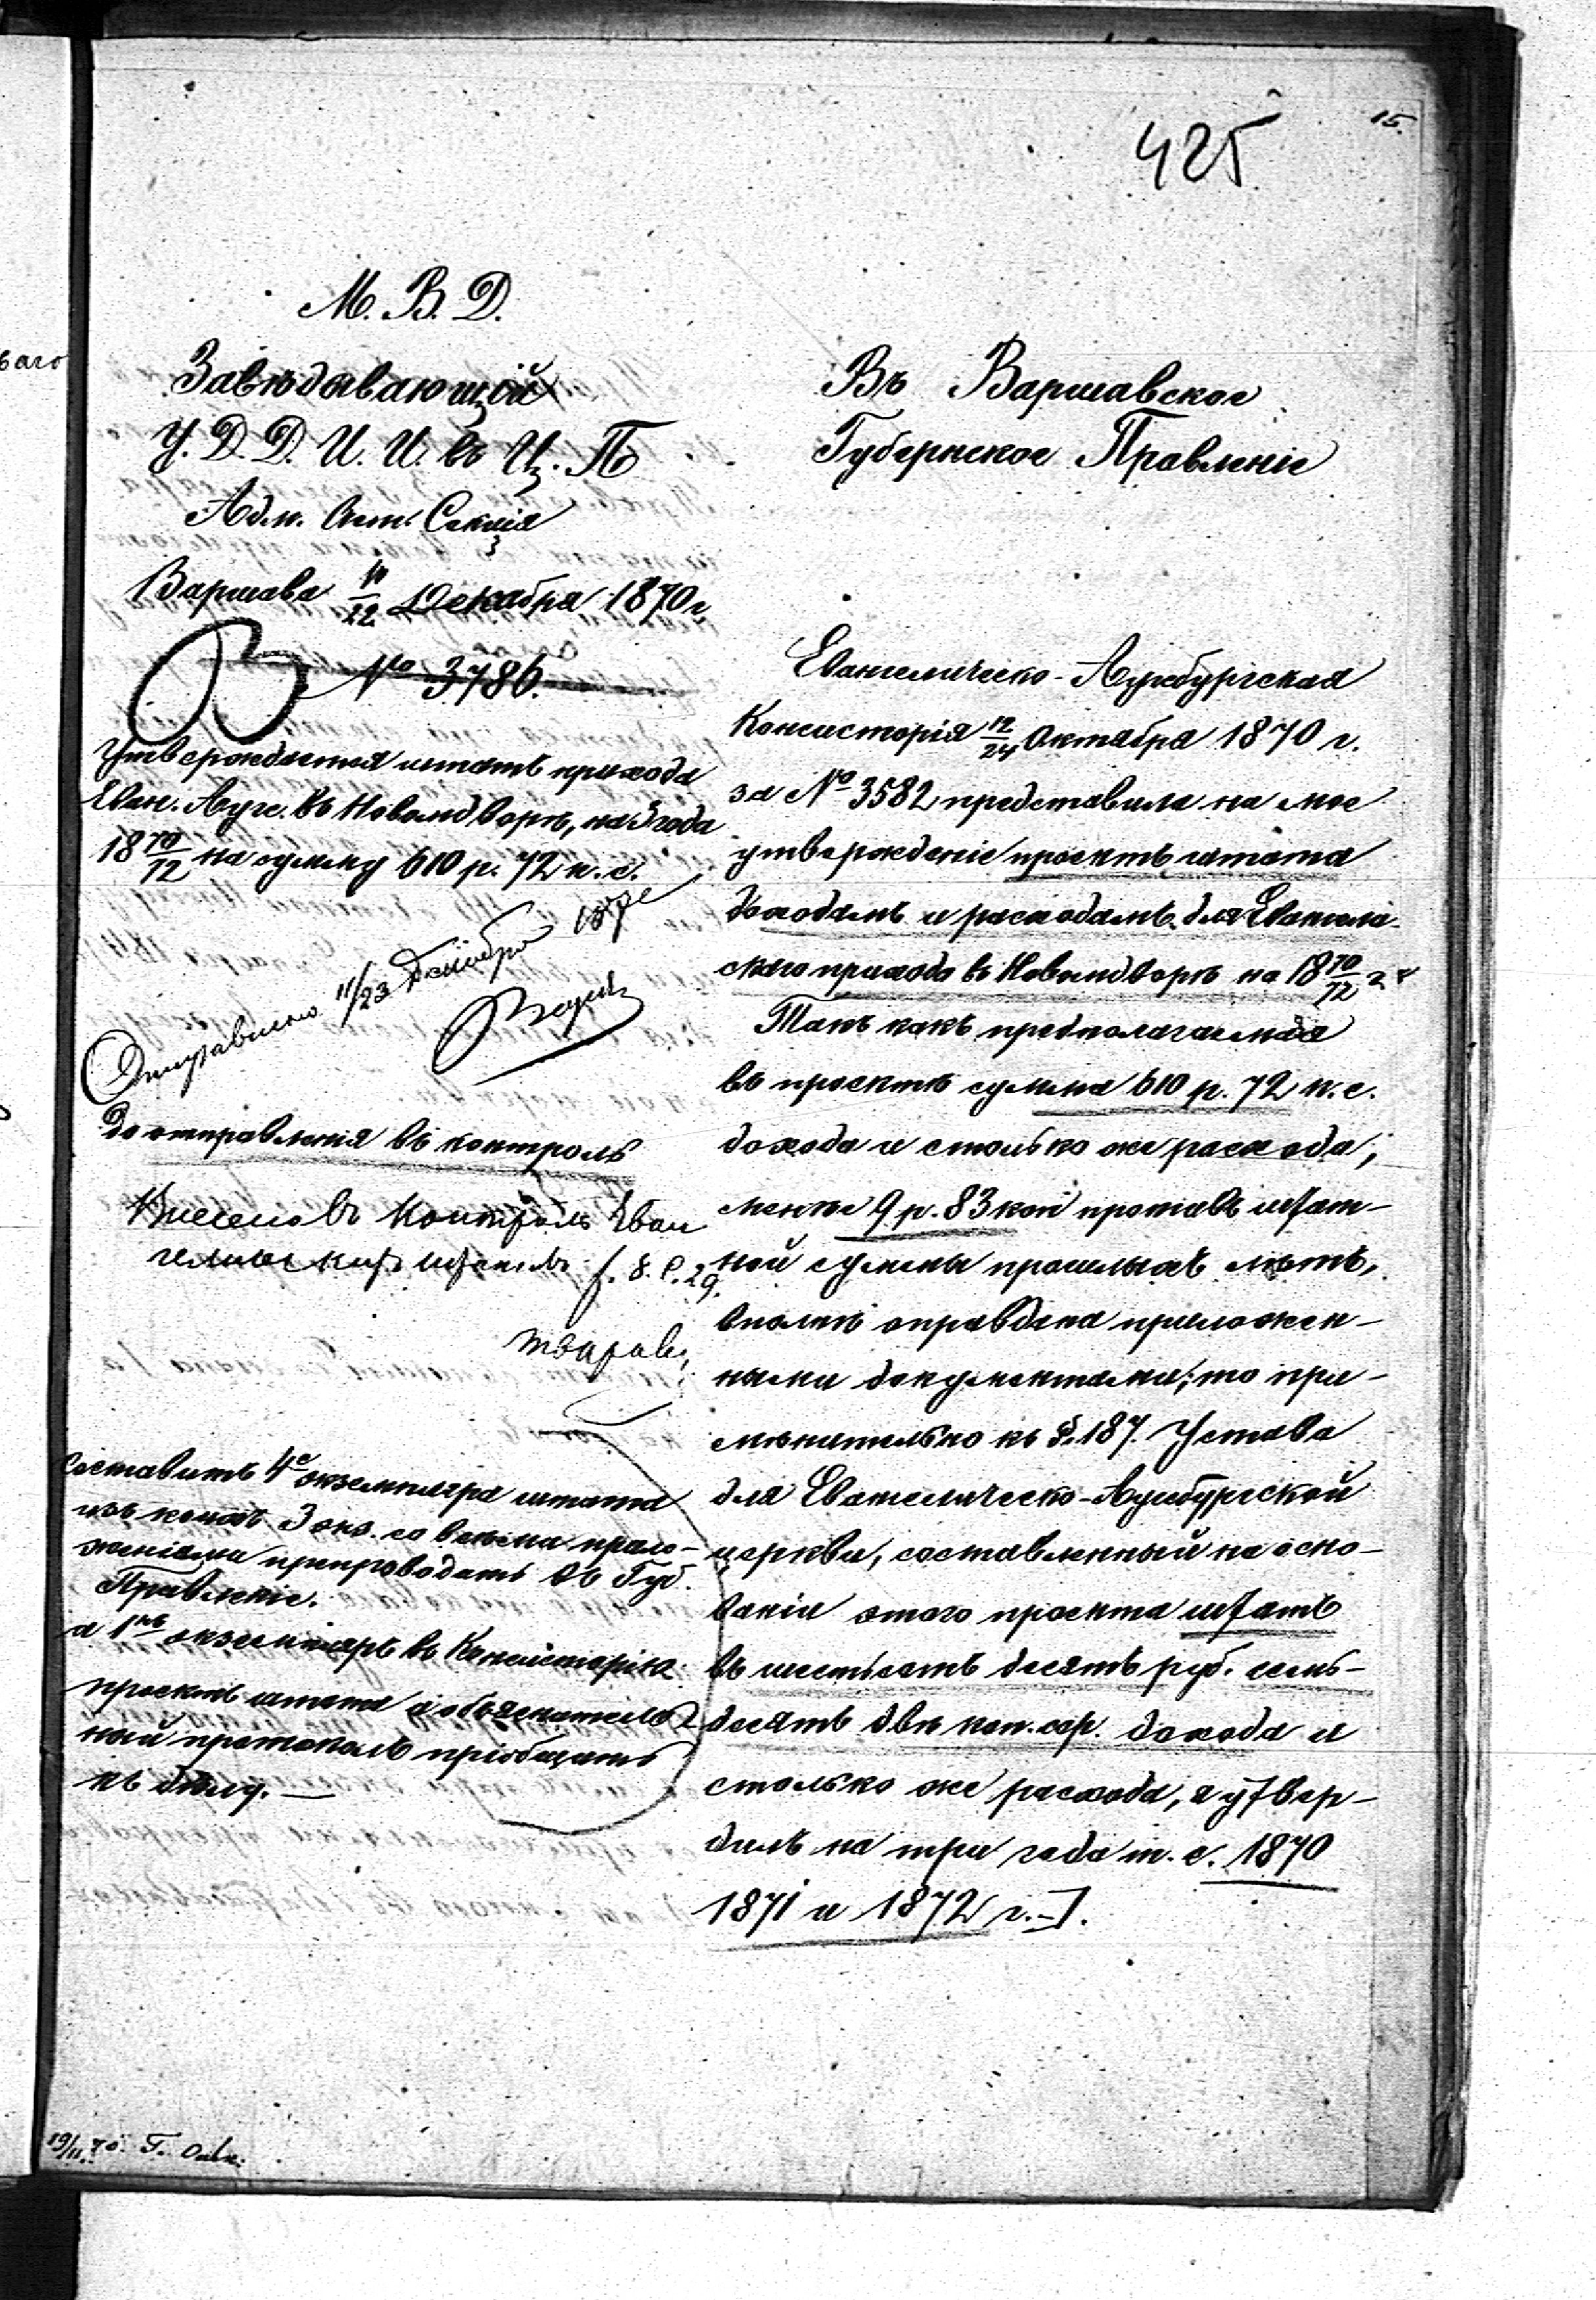 15.
425
М. В. Д.
Завѣдывающій
У. Д. Д. И. И. въ Ц. П
Адм. Секція
Варшава 10/22 Декабря 1870 г
№ 3786.
Утверждается штатъ прихода
Еван. Ауге. въ Новымдворѣ, на 3 года
18 70/72 на сумму 610 р. 72 к. с.
Отправлено 11/23 Декабря
До отправленія въ контроль
Внесено въ Контроль Еван
гелическихъ штатовъ f. 8. P. 29.
Составить 4е экземпляра штата
изъ коихъ 3 экз. со всѣми прило-
женіями препроводить въ Губ.
Правленіе.
а 1нъ экземпляръ въ Консисторію
проектъ штата и объяснитель
ный протоколъ пріобщить
къ дѣлу. —
19/11 70.
Въ Варшавское
Губернское Правленіе
Евангелическо-Аугсбургская
Консисторія 12/24 Октября 1870 г.
за № 3582 представила на мое
утвержденіе проектъ штата
доходамъ и расходамъ для Евангели-
скаго прихода въ Новымдворѣ на 18 70/72 г
Такъ какъ предполагаемая
въ проектѣ сумма 610 р. 72 к. с.
дохода и столько же расхода,
менѣе 9 р. 83 коп противъ штат-
ной суммы прошлыхъ лѣтъ,
вполнѣ оправдана приложен-
ными документами; то при-
мѣнительно къ §. 187. Устава
для Евангелическо-Аугсбургской
церкви, составленный на осно-
ваніи этого проекта штатъ
въ шестьсотъ десять руб. семь-
десятъ двѣ коп. сер. дохода и
столько же расхода, я утвер-
дилъ на три года т. е. 1870
1871 и 1872 г.